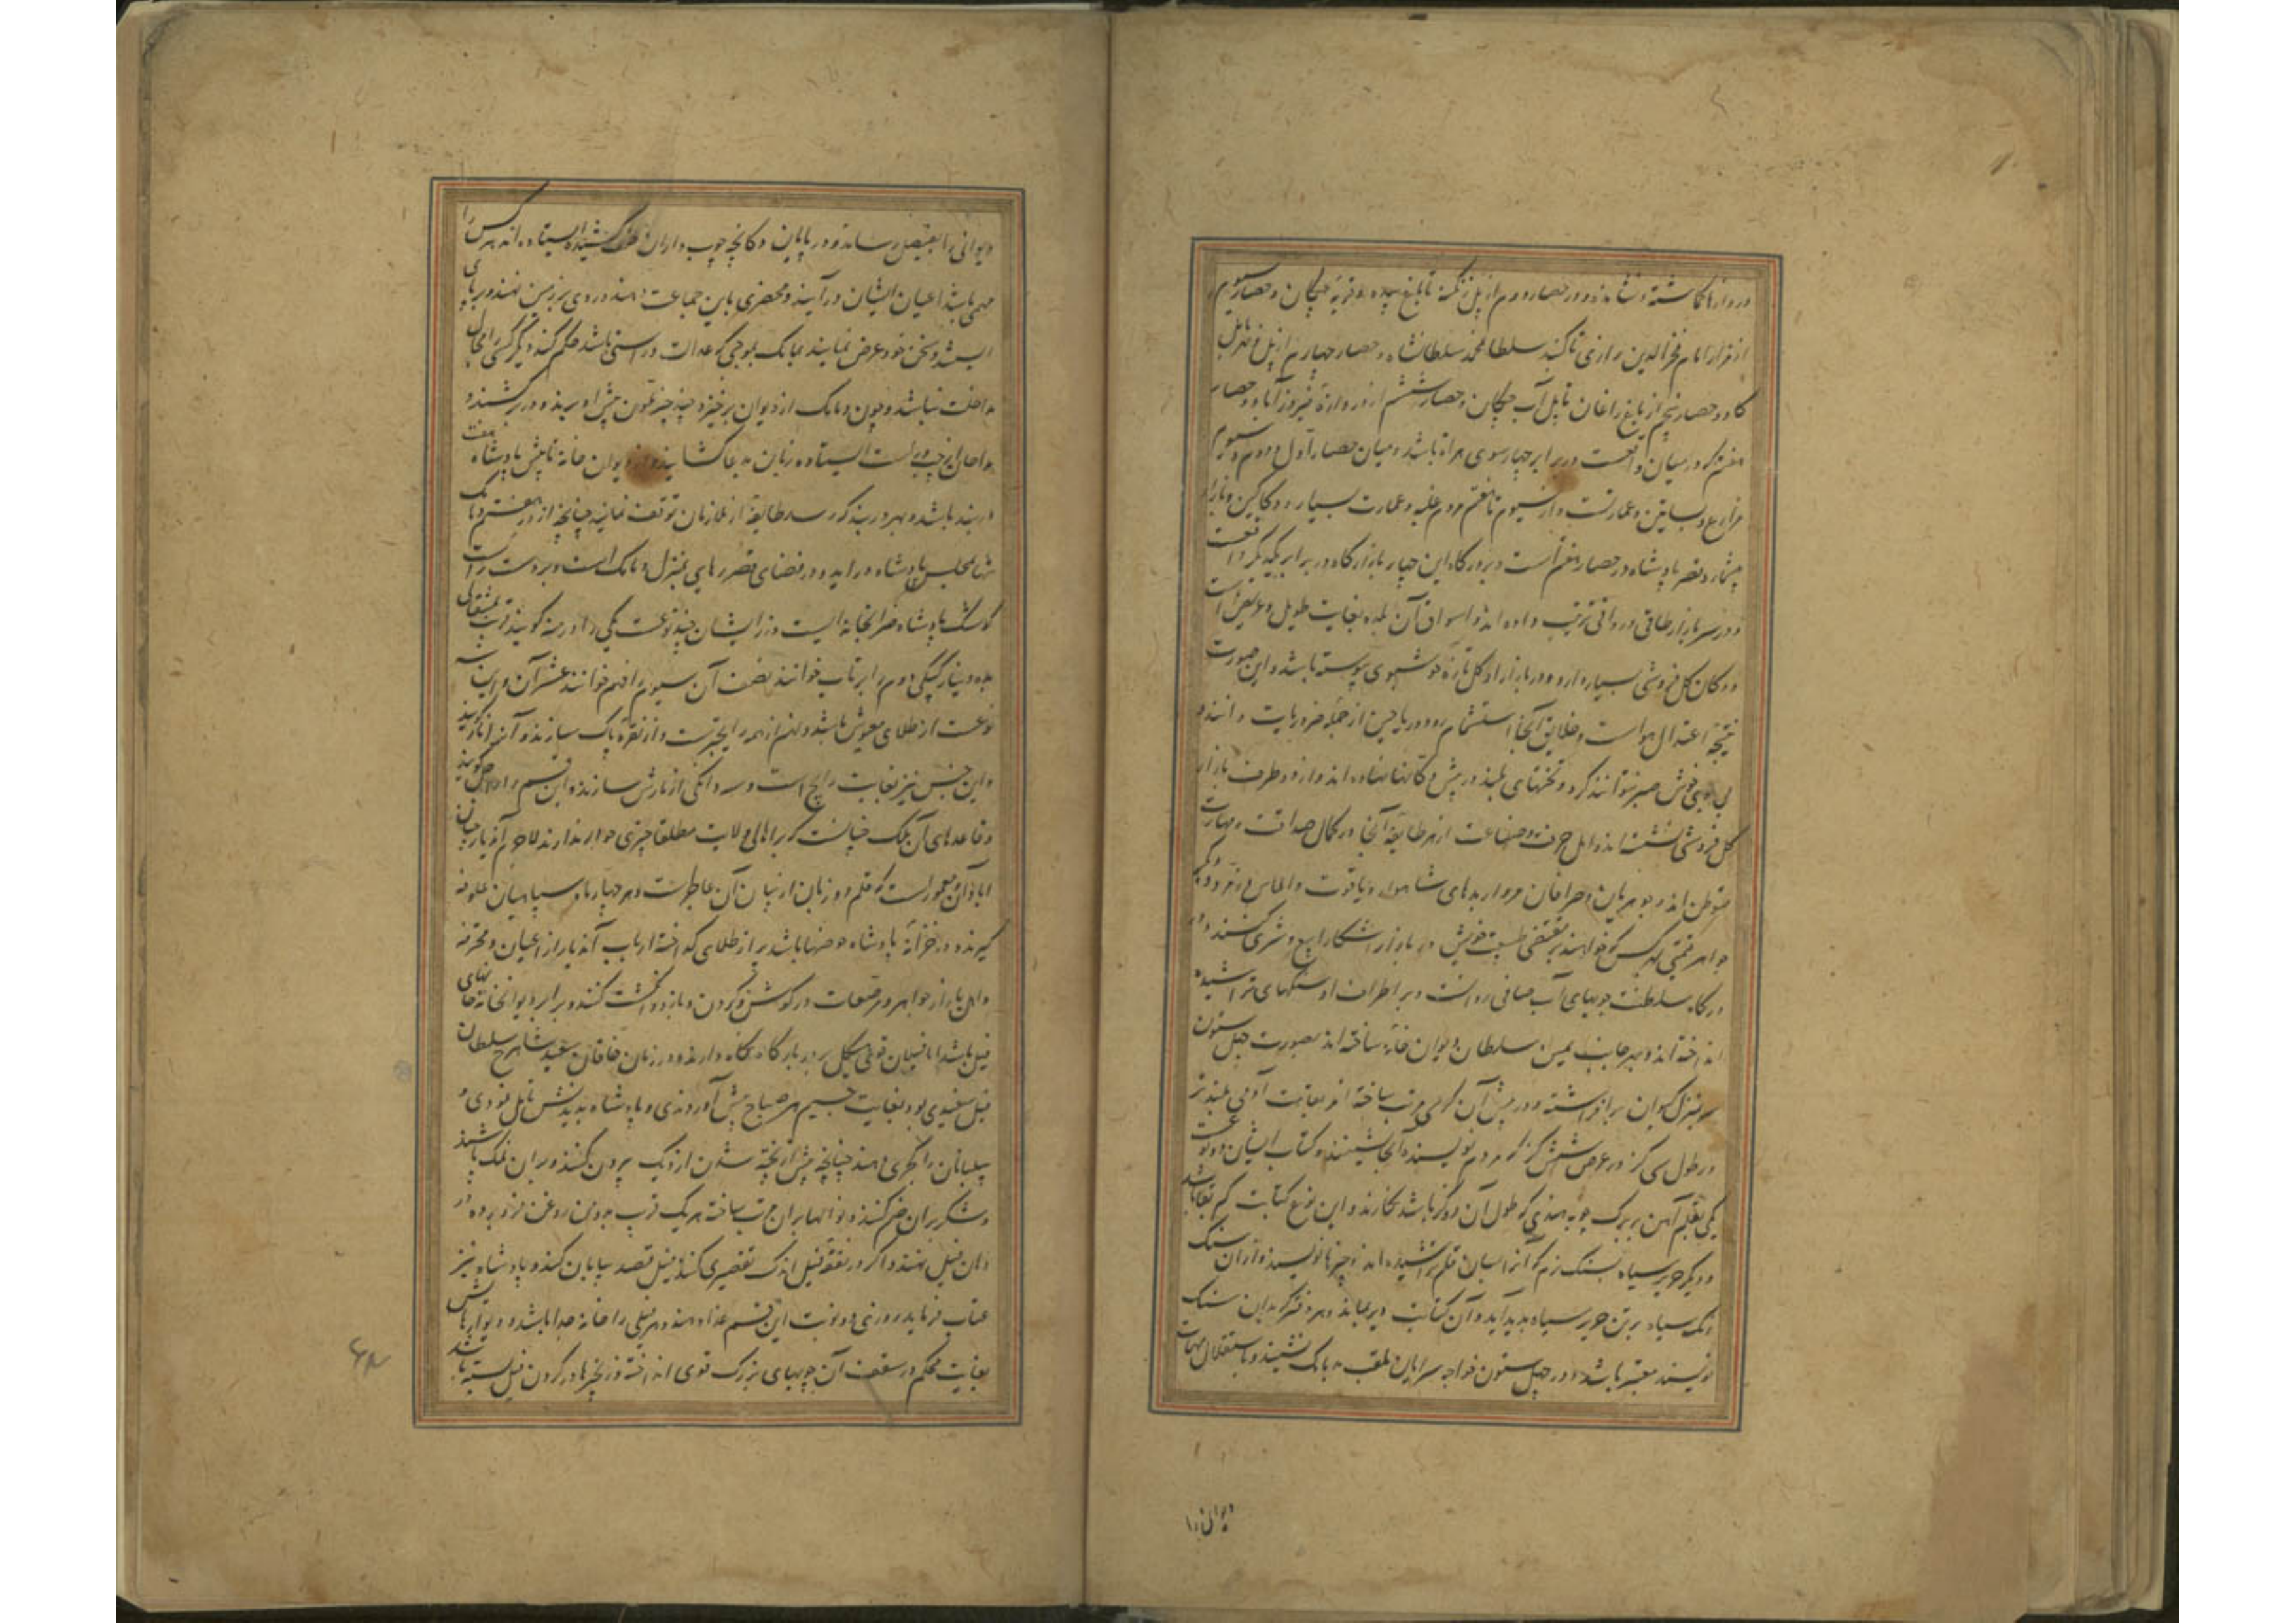 دروازها کاشته و نشانده و در حصار دوم از پل زنگینه تا باغ سیده و قریه چکان و حصار سیوم
از مزار امام فخرالدین رازی تا کنبد سلطان محمد سلطانشاه و حصار چهارم از پل تا پل
کاو و حصار پنجم از باغ زاغان تا پل آب چکان و حصار ششم از دروازه فیروزآباد و حصار
هفتم که در میان واقعست در برابر چهارسوی هراة باشد و میان حصار اول و دوم و سیوم
مزارع و بساتین و عمارتست و از سیوم تا هفتم مردم غلبه و عمارت بسیار و دکاکین و بازار
بیشمار و قصر پادشاه در حصار هفتم است و بر درگاه این چهار بازارگاه در برابر یکدیگر واقعست
و در سر بازار طاقی و رواقی ترتیب داده اند و اسواق آن بلده بغایت طویل و عریض است
و دکان کل فروشی بسیار دارد و در بازار او کل تازه خوشبوی پیوسته باشد و این صورت
نتیجه اعتدال هواست و خلایق آنجا استشمام ورد و ریاحین از جمله ضروریات دانند و
بی بوی خوش صبر نتوانند کرد و تختهای بلند در پیش دکانها نهاده اند و از دو طرف بازار
کل فروشی نشسته اند و اهل حرفه و صناعت از هر طایفه آنجا در کمال حذاقت و مهارت
متوطن اند و جوهریان و صرافان مرواریدهای شاهوار و یاقوت و الماس و زمرد و دیگر
جواهر قیمتی بهر کس که خواهند بمقتضی طبیعت خویش در بازار آشکارا بیع و شری کنند و در
درکاه سلطنت جویهای آب صافی روانست و بر اطراف او سنکهای تراشیده
انداخته اند و بر جانب یمین سلطان دیوان خانه ساخته اند بصورت چهل ستون
سر بمنزل کیوان برافراشته و در پیش آن کرسی مرتب ساخته از قامت آدمی بلندتر
در طول سی کز در عرض شش کز که مردم نویسنده آنجا نشینند و کتاب ایشان دو نوعست
یکی بقلم آهن بر برک جوز هندی که طول آن دو کز باشد نکارند و این نوع کتابت کم بقا باشد
و دیگر حریر سیاه بسنک نرم که آنرا بسان قلم تراشیده اند چیزها نویسند و از آن سنک
رنک سیاه برین حریر سیاه پدید آید و آن کتابت دیر بماند و هر دفتر که بدان سنک
نویسند معتبر باشد و در چهل ستون خواجه سرایان ملقب بدیانک نشیند و باستقلال مهمات
دیوانی را
دیوانی را بفیصل رساند و در پایان دکانچه چوب داران صف کشیده ایستاده اند هر کس را
مهمی باشد از میان ایشان درآیند و محضری باین جماعت دهند و روی بر زمین نهند و بر پای
ایستند و سخن خود عرض نمایند دیانک بموجبی که عدالت و راستی باشد حکم کند و دیگر کسی را مجال
مداخلت نباشد و چون دیانک از دیوان برخیزد چند چتر ملون پیش او برند و در بر کشند و
مداحان از چپ و راست ایستاده زبان بدعا کشایند و از دیوان خانه تا پیش پادشاه هفت
دربند باشد و بهر دربند که رسد طایفه از ملازمان توقف نمایند چنانچه از در هفتم دیانک
تنها بمجلس پادشاه درآید و در فضای قصر رهایی منزل دیانک است و بر دست راست
کوشک پادشاه ضرابخانه ایست و زر ایشان چند نوعست یکی را ورهه کویند قریب بمثقالی
بده دینار کپکی دوم را پرتاب خوانند نصف آن سیوم را فنم خوانند عشر آن و این سه
نوعست از طلای مغشوش باشد و فنم از همه رایجتر است و از نقره پاک سازند و آنرا تار کویند
و این جنس نیز بغایت رایج است و سه دانکی از مس سازند و این قسم را جیتل کویند
و قاعدهای آن ملک چنانست که براهالی ولایت مطلقا چیزی حواله ندارند لاجرم آن دیار چنان
آبادان و معمورست که قلم دو زبان از بیان آن عاجزست و هر چهار ماه سپاهیان علوفه
کیرند و در خزانه پادشاه حوضها باشد پر از طلای کداخته ارباب آن دیار از اعیان و محترفه
و اهل بازار جواهر و مرصعات در کوش و کردن و بازو و انکشت کنند و برابر دیوانخانه جای
فیل باشد اما فیلان قوی هیکل بر در بارکاه نکاه دارند و در زمان خاقان سعید شاهرخ سلطان
فیل سفیدی بود بغایت جسیم هر صباح پیش آوردندی و پادشاه بدیدنش مایل بودی و
پیلبانان را کهچری دهند چنانچه پیش از پخته شدن از دیک بیرون کنند و بران نمک پاشند
و شکر بران ضم کنند و نوالها بران مرتب ساخته هر یک قریب بدو من روغن فرو برده در
دهان فیل نهند و اکر در نفقه فیل اندک تقصیری کنند فیل قصد پیلبان کند و پادشاه نیز
عتاب فرماید و روزی دو نوبت این قسم غذا دهند و هر فیلی را خانه جدا باشد و دیوارهاش
بغایت محکم در سقف آن چوبهای بزرک قوی انداخته و زنجیرها در کردن فیل بسته باشند